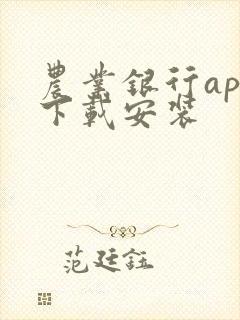 農業銀行ap
下載安裝
范廷鈺